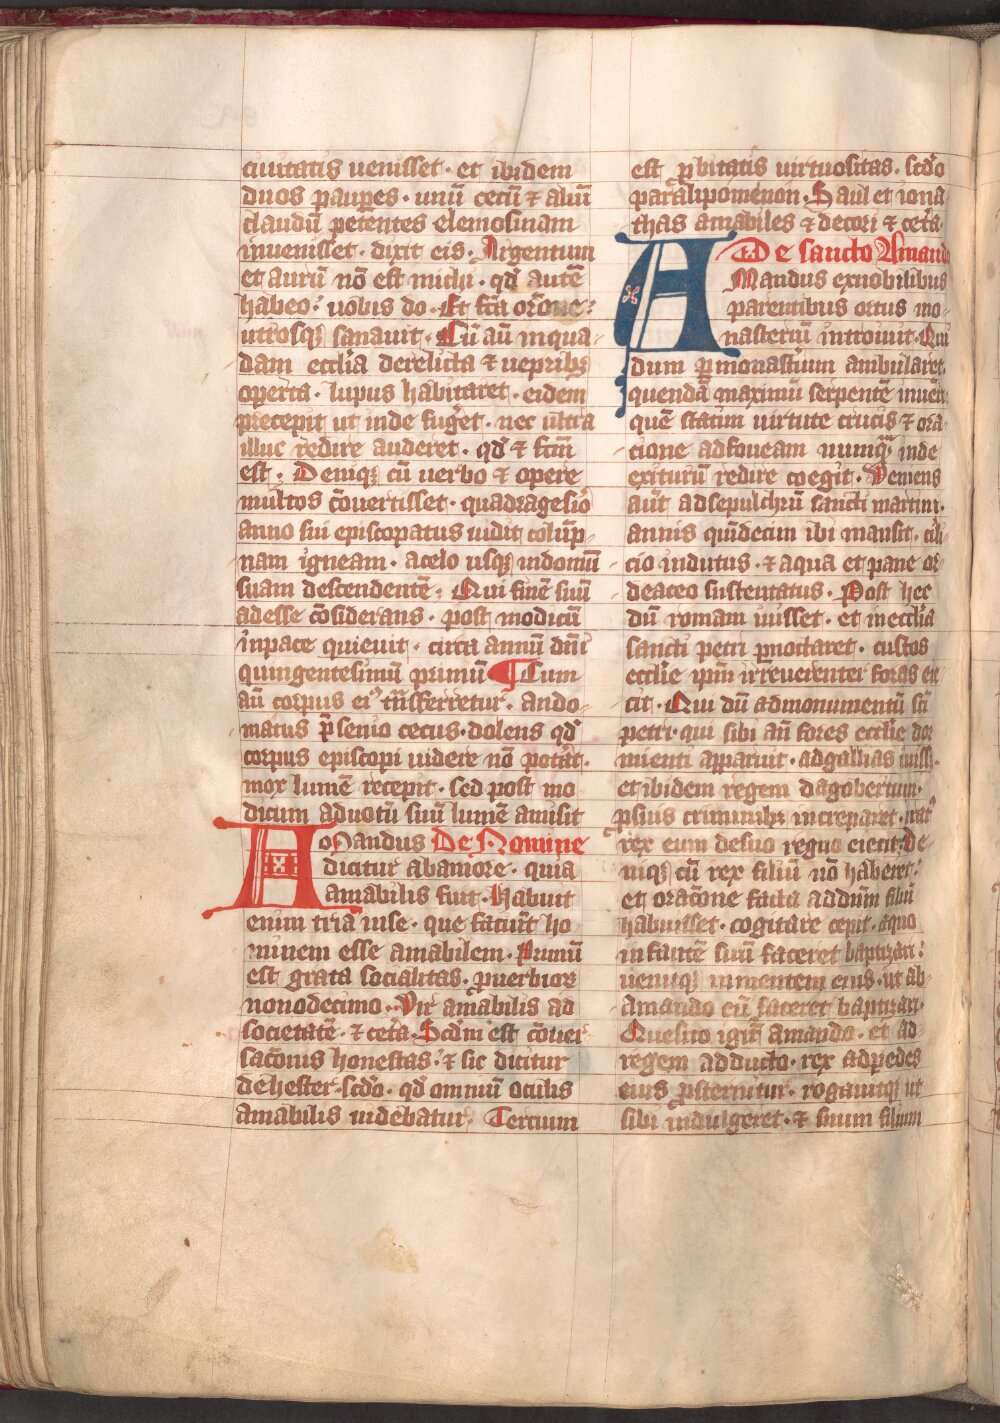 ciuitatis uenisset · et ibidem
duos paupes · unū cecū ⁊ aliū
claudū petentes elemosinam
inuenisset · dixit eis · Argentum
et aurū nō est michi · qd̕ autē
habeo · uobis do · Et fc̄a orōne ·
utrosqꝫ sanauit · Cū aū in qua
dam ecclīa derelicta ⁊ uepribꝫ
operta · lupus habitaret · eidem
precepit ut inde fug̕et · nec ultra
illuc redire auderet · qd̕ ⁊ fc̄m
est · Deniqꝫ cū uerbo ⁊ opere
multos c̄ouertisset · quadragesīo
anno sui episcopatus uidit colūp
nam igneam · acelo usqꝫ indomū
suam descendentē · Qui finē suū
adesse c̄osiderans · post modicū
inpace quieuit · circa annū dn̄i
quingentesimū primū ¶ Cum
aū corpus eiꝰ trn̄sferretur · ando
matus p̄ senio cecus · dolens qd̕
corpus episcopi uidere nō pot̕at ·
mox lumē recepit · sed post mo
dicum aduotū suū lumē amisit
Amandus De Nomine
dicitur abamore · quia
amabilis fuit · Habuit
enim tria inse · que faciūt ho
minem esse amabilem · Primū
est grata socialitas · ꝓuerbioꝝ
nonodecimo · Vir amabilis ad
societatē · ⁊ cet̕a · Scdm̄ est c̄ouer
sac̄onis honestas · ⁊ sic dicitur
dehester · scdo̕ · qd̕ omniū oculis
amabilis uidebatur · Tercium
est ꝓbitatis uirtuositas · scdo̕
paralipomenon · Saul et iona
thas amabiles ⁊ decori ⁊ cet̕a ·
De sancto Amando
AMandus exnobilibus
parentibus ortus mo
nasteriū introiuit · Qui
dum ꝑ monast̕ium ambularet ·
quendā maximū serpentē inuen
quē statim uirtute crucis ⁊ ora
cione adfoueam nunqᷓ inde
exiturū redire coegit · Veniens
aūt adsepulchrū sancti martini ·
annis quīdecim ibi mansit · cili
cio indutus · ⁊ aqua et pane or
deaceo sustentatus · Post hec
dū romam iuisset · et inecclīa
sancti petri ꝑnoctaret · custos
ecclīe ipm̄ irreuerenter foras eie
cit · Qui dū admonumentū sc̄i
petri · qui sibi aū fores ecclīe dor
mienti apparuit · adgallias
et ibidem regem dagobertum ·
ipsius criminibꝫ increparet ·
rex eum desuo regno eiecit · De
niqꝫ cū rex filiū nō haberet ·
et orac̄one facta addn̄m filiū
habuisset · cogitare cepit · aquo
infantē suū faceret baptizari ·
uenitqꝫ inmentem eius · ut ab
Amando eū faceret baptizari ·
Quesito igit̕ amando · et ad
regem adducto · rex adpedes
eius ꝓsternitur · rogauitqꝫ ut
sibi indulgeret · ⁊ suum filium